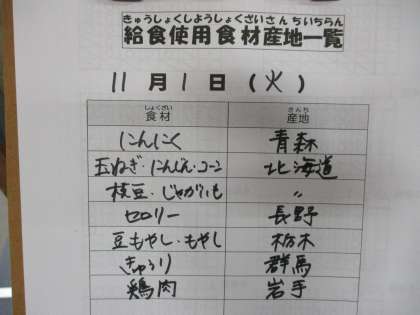 きゅうしょくしようしょくざいさんちいちらん
給食使用食材産地一覧
11月1日(火)
しょくざい さんち
食材 産地
にんにく 青森
玉ねぎ・にんじん・コーン 北海道
枝豆・じゃがいも 〃
セロリー 長野
豆もやし・もやし 栃木
きゅうり 群馬
鶏肉 岩手